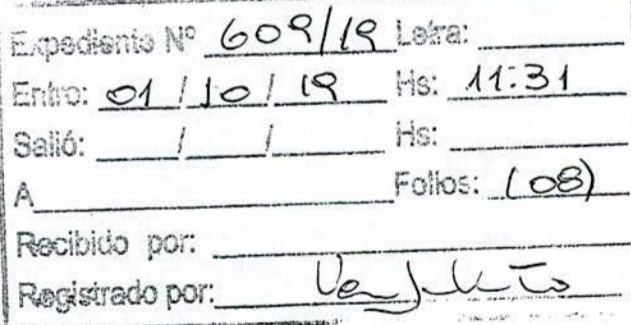 Expediente Nº 609/19 Letra:
Entro: 01 / 10 / 19 Hs: 11:31
Salió: / / Hs:
A Folios: (08)
Recibido por:
Registrado por: